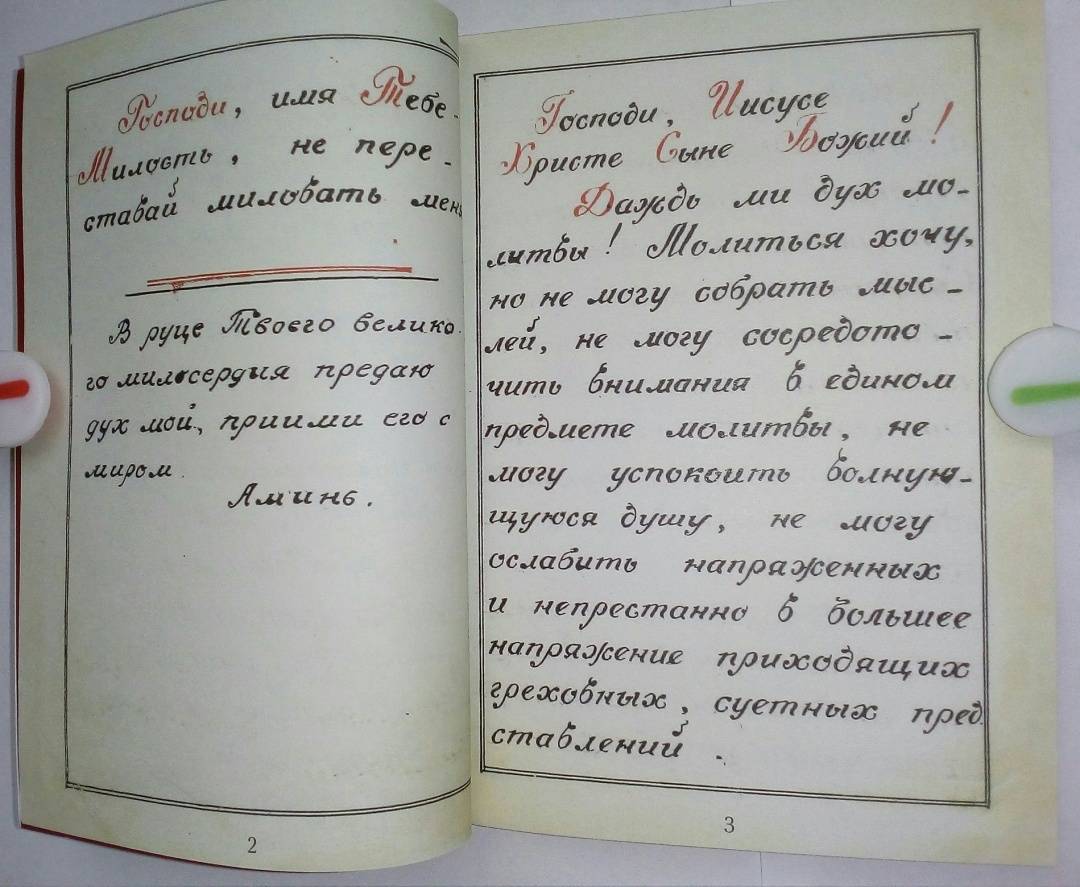 Господи, имя Тебе -
Милость, не пере -
ставай миловать мень
В руце Твоего велико -
го милосердия предаю
дух мой, приими его с
миром.
Аминь.
2
Господи, Иисусе
Христе Сыне Божий!
Даждь ми дух мо -
литвы! Молиться хочу,
но не могу собрать мыс -
лей, не могу сосредото -
чить внимания в едином
предмете молитвы, не
могу успокоить волную -
щуюся душу, не могу
ослабить напряженных
и непрестанно в большее
напряжение приходящих
греховных, суетных пред
ставлений.
3